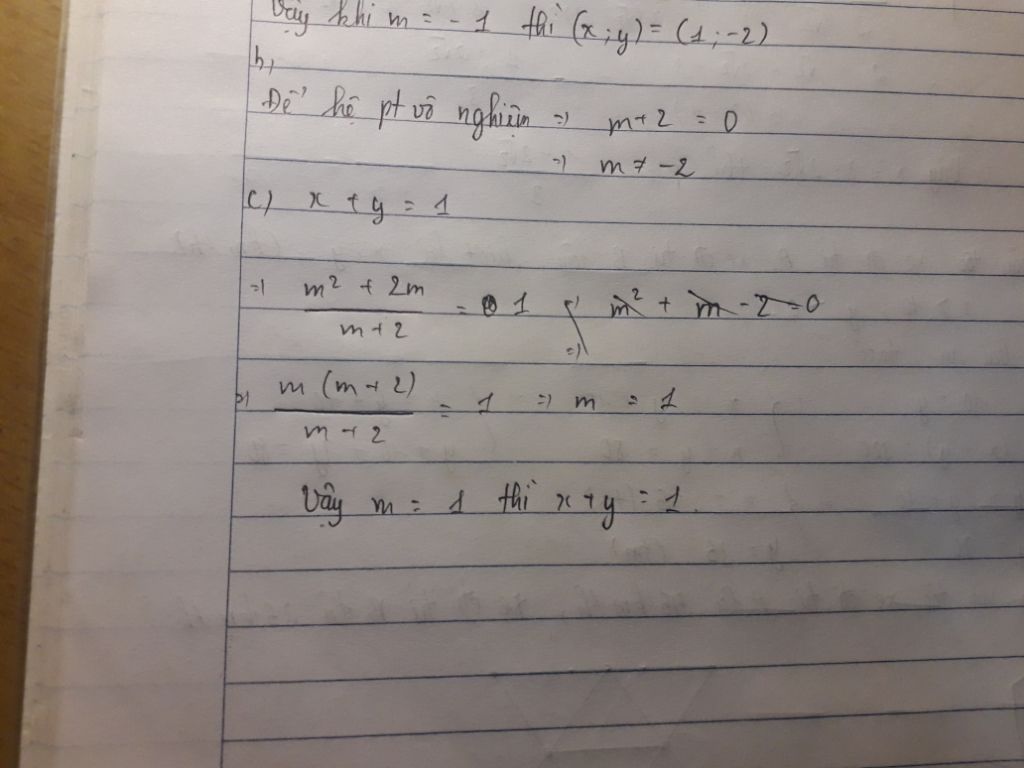 Vậy khi m = - 1 thì (x; y) = (1; -2)
b,
Để hệ pt vô nghiệm => m + 2 = 0
=> m ≠ -2
c) x + y = 1
=> (m² + 2m)/(m + 2) = 1 m² + m - 2 = 0
=>
=> (m (m + 2))/(m + 2) = 1 => m = 1
Vậy m = 1 thì x + y = 1.